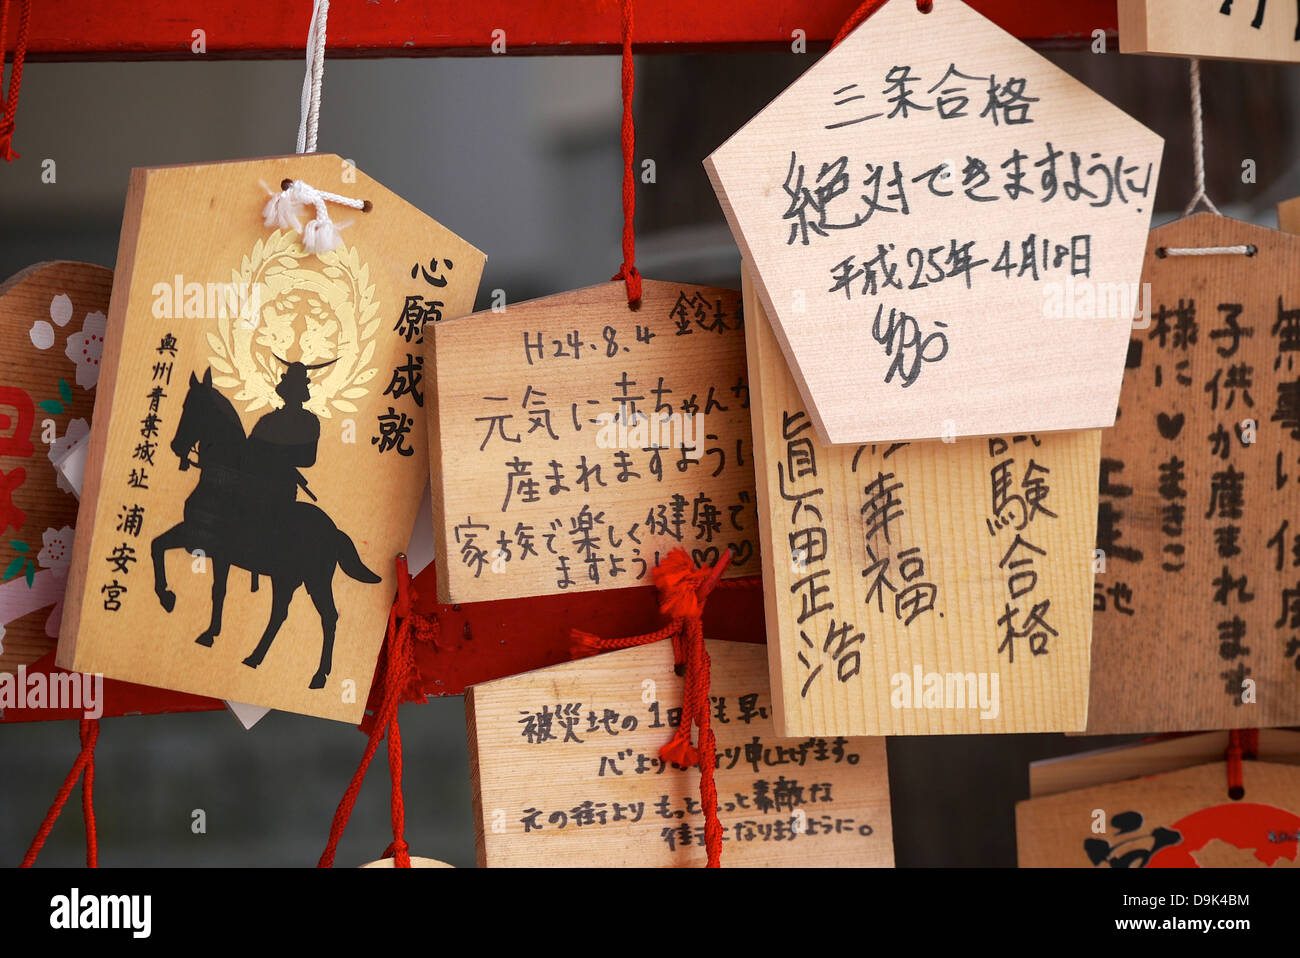 心願成就
奥州青葉城址
浦安宮
鈴木
H24.8.4
元気に赤ちゃんが
産まれますように
家族で楽しく健康で
ますように♡♡
三条合格
絶対できますように!
平成25年4月18日
試験合格
幸福
眞田正浩
被災地の1日も早い
心より 祈り申し上げます。
元の街より もっと 素敵な
街になりますように。
子供が産まれます
様に♥まきこ
無事に
a alamy stock photo
D9K4BM
www.alamy.com